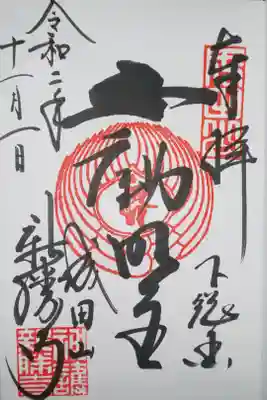 奉拝
下総国
不動明王
成田山
新勝寺
令和二年
十一月一日